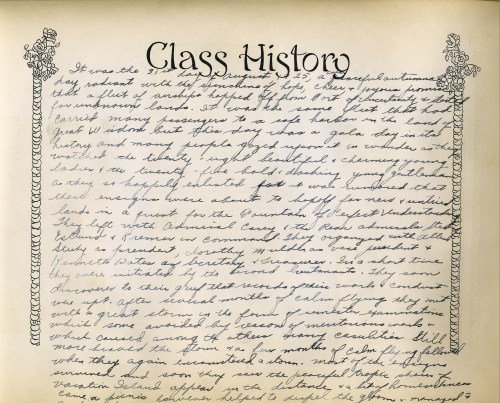 Class History
It was the 31st day of August 1925, a peaceful autumnal
day radiant with the sunshine of hope, cheer, & joyous promise
that a fleet of airships hopped off from Port of Uncertainty & started
for unknown lands. It was the same fleet that had
carried many passengers to a safe harbor in the land of
great Wisdom but this day was a gala day in its
history and many people gazed upon it in wonder as they
watched the twenty-eight beautiful & charming young
ladies & the twenty-five bold & dashing young gentlemen
as they so happily enlisted for it was rumored that
these ensigns were about to hop off for new & untried
lands in a quest for the Fountain of Perfect Understanding
They left with Admiral Carey & the Rear admirals
& Kremer in command. They organized with
as president, Dorothy as vice president &
Kenneth Bates as Secretary & Treasurer. In a short time
they were initiated by the second lieutenants. They soon
discovered to their grief that records of their work & conduct
was kept. After several months of calm flying they met
with a great storm in the form of semester examinations
which some avoided by reason of meritorious work &
which caused among the others many casualties Still
more braved the storm & a few months of calm flying followed
when they again encountered a storm. Most of the ensigns
survived and soon they saw the peaceful tropic
vacation Island appear in the distance & a bit of homesickness
came. a picnic however helped to dispel the gloom & managed to